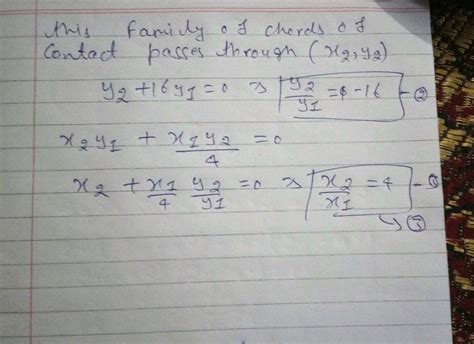 this family of chords of
Contact passes through (x₂,y₂)
y₂ + 16y₁ = 0 ⇒ y₂/y₁ = -16 - ②
x₂y₁ + x₁y₂/4 = 0
x₂ + x₁/4 y₂/y₁ = 0 ⇒ x₂/x₁ = 4 -
↳ ③